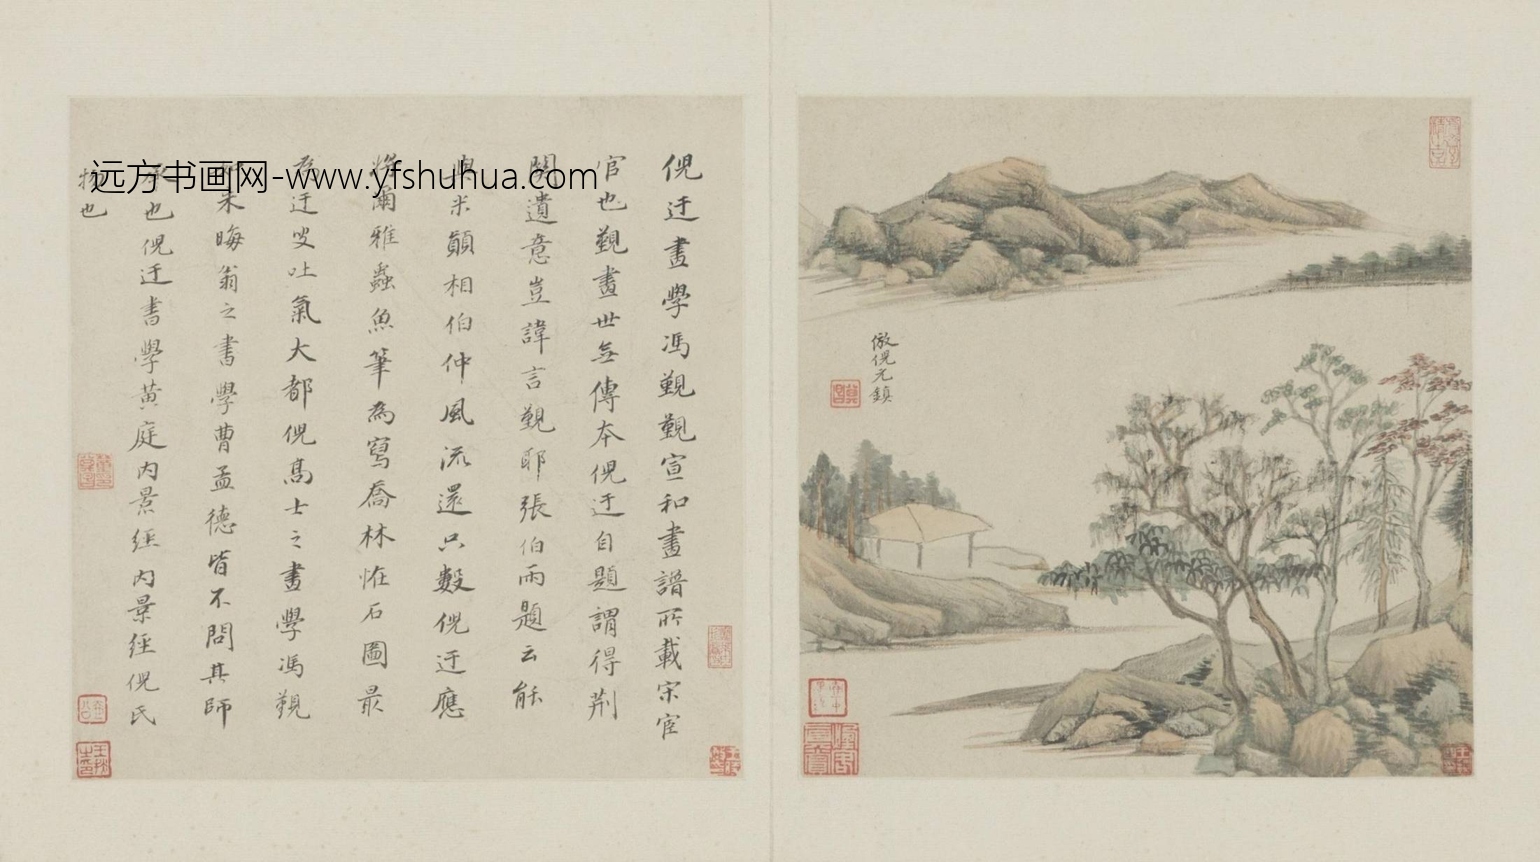 远方书画网-www.yfshuhua.com
倣倪元鎮
倪迂畫學馮覲覲宣和畫譜所載宋宦
官也覲畫世無傳本倪迂自題謂得荊
關遺意豈諱言覲耶張伯雨題云能
與米顛相伯仲風流還只數倪迂應
將爾雅蟲魚筆為寫喬林恠石圖最
為迂叟吐氣大都倪高士之畫學馮覲
如朱晦翁之書學曹孟德皆不問其師
承也倪迂書學黃庭內景經內景經倪氏
物也